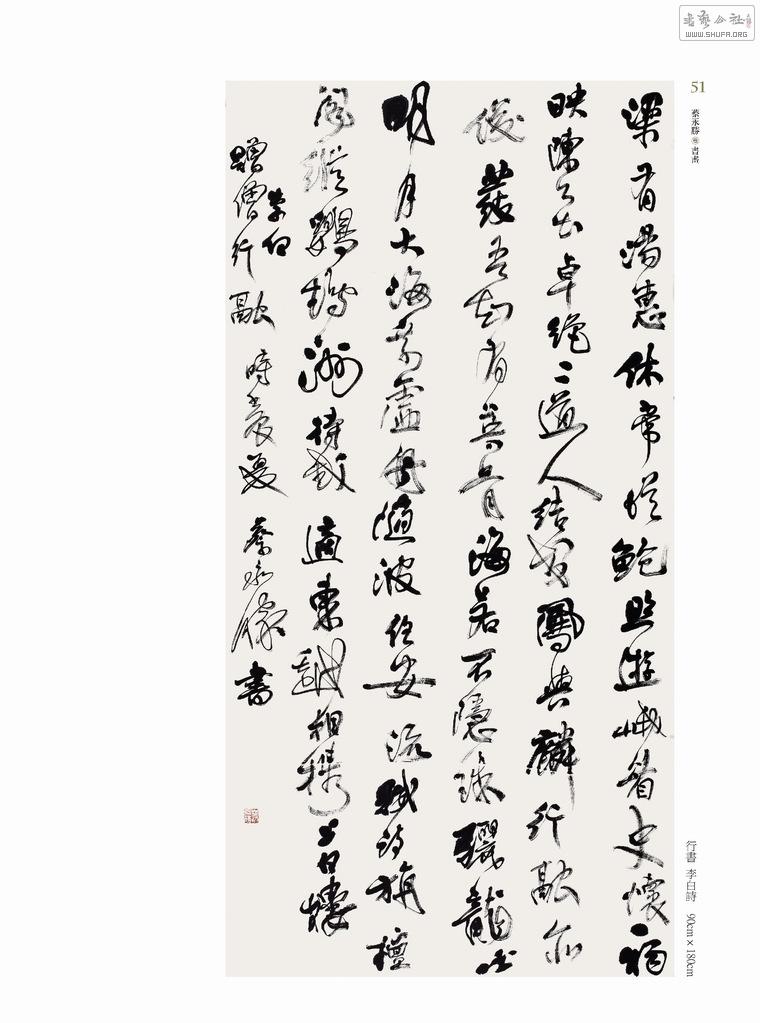 書藝公社
WWW.SHUFA.ORG
51
蔡永勝 書畫
梁有湯惠休常從鮑照遊峨眉史懷一獨
映陳公出卓絕二道人結交鳳與麟行融亦
俊發吾知有英骨海若不隱珠驪龍吐
明月大海乘虛舟隨波任安流賦詩旃檀
閣縱鸚鵡洲待我適東越相攜上白樓
李白
贈僧行融 時夏 蔡永勝書
行書 李白詩 90cm×180cm